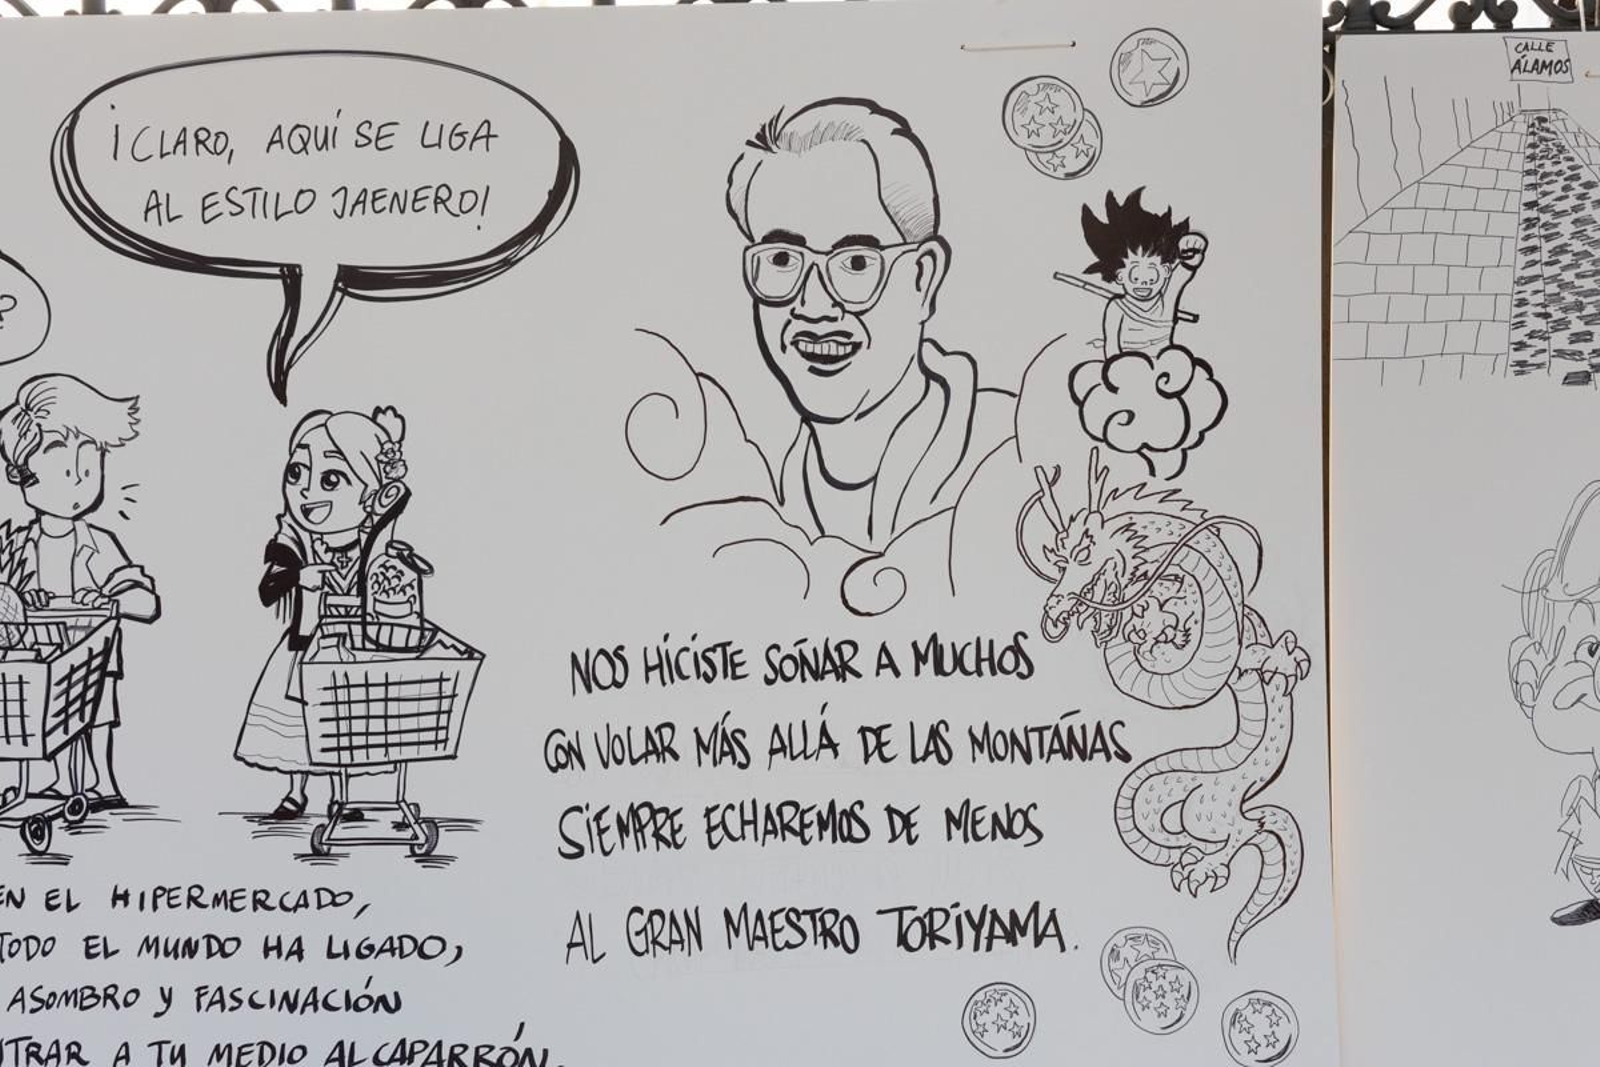 ?
¡CLARO, AQUÍ SE LIGA
AL ESTILO JAENERO!
EN EL HIPERMERCADO,
TODO EL MUNDO HA LIGADO,
ASOMBRO Y FASCINACIÓN
A TU MEDIO ALCAPARRÓN.
NOS HICISTE SOÑAR A MUCHOS
CON VOLAR MÁS ALLÁ DE LAS MONTAÑAS
SIEMPRE ECHAREMOS DE MENOS
AL GRAN MAESTRO TORIYAMA.
CALLE
ÁLAMOS